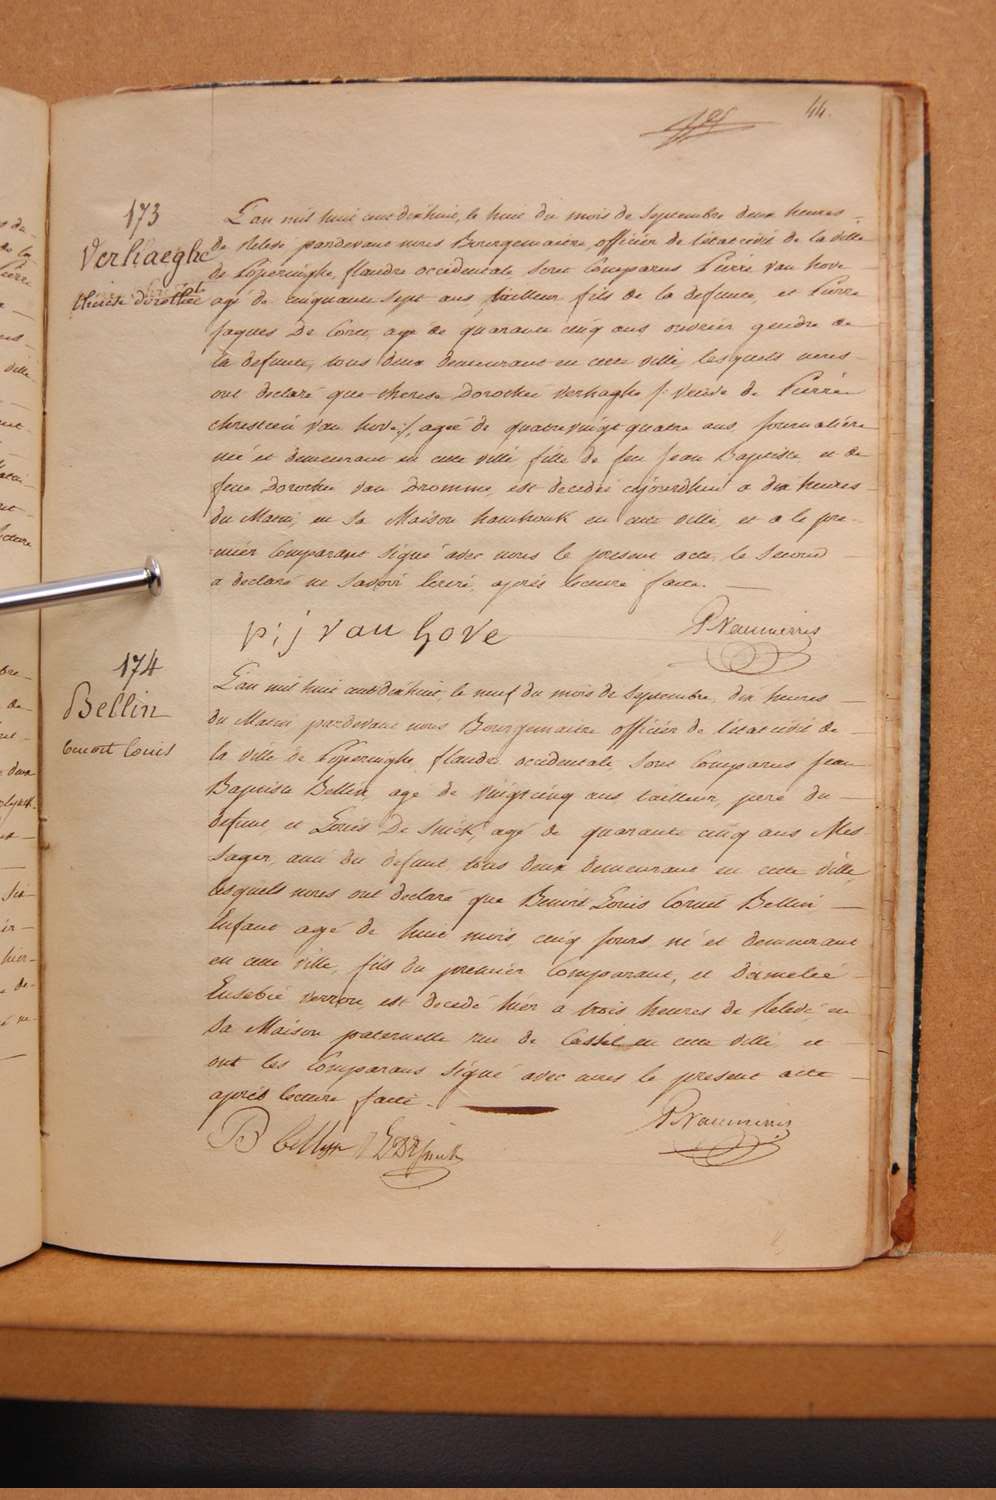 44.
173
Verhaeghe
thérèse dorothée
L'an mil huit cent dix huit, le huit du mois de Septembre deux heures
de Relevé pardevant nous Bourguemaitre, officier de l'état civil de la ville
de Poperinghe, flandre occidentale sont Comparus Pierre van hove
agé de cinquante sept ans, tailleur fils de la defunte, et Pierre
Jaques De Conte, agé de quarante cinq ans ouvrier gendre de
la defunte, tous deux demeurant en cette ville, lesquels nous
ont declaré que therese Dorothée Verhaghe /: veuve de Pierre
chretien van hove :/, agée de quatrevingt quatre ans, journalière
née et demeurant en cette ville fille de feu Jean Baptiste et de
feue Dorothée van Dromme, est decedée cejourdhui a dix heures
du Matin, en sa Maison hamhouk en cette ville, et a le pre-
mier Comparant signé avec nous le present acte, le second
a declaré ne savoir écrire, après lecture faite.
p: j van hove
PVanmerris
174
Bellin
benoit Louis
L'an mil huit cent dix huit, le neuf du mois de Septembre, dix heures
du Matin pardevant nous Bourguemaitre officier de l'état civil de
la ville de Poperinghe, flandre occidentale, sont Comparus Jean
Baptiste Bellin, agé de vingt cinq ans tailleur, père du
defunt, et Louis De Snick, agé de quarante cinq ans Mes-
sager, ami du defunt, tous deux demeurant en cette ville,
lesquels nous ont declaré que Benoit Louis Cornil Bellin
Enfant agé de huit mois, cinq jours, né et demeurant
en cette ville, fils du premier Comparant, et d'amelie
Eusebie verron, est decedé hier à trois heures de Relevé, en
sa Maison paternelle rue de Cassel en cette ville et
ont les Comparans signé avec nous le present acte
après lecture faite.
B Bellyn
L D Snick
PVanmerris